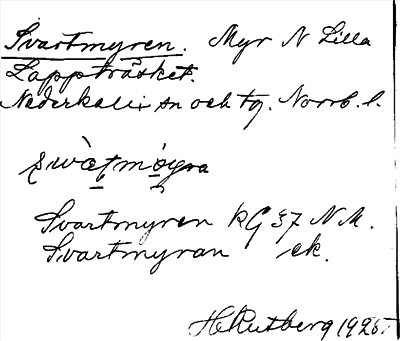 Svartmyren. Myr N Lilla
Lappträsket.
Nederkalix sn och tg. Norrb. l.
Svartmyren kG 37 N.M.
Svartmyran ek.
H Rutberg 1925